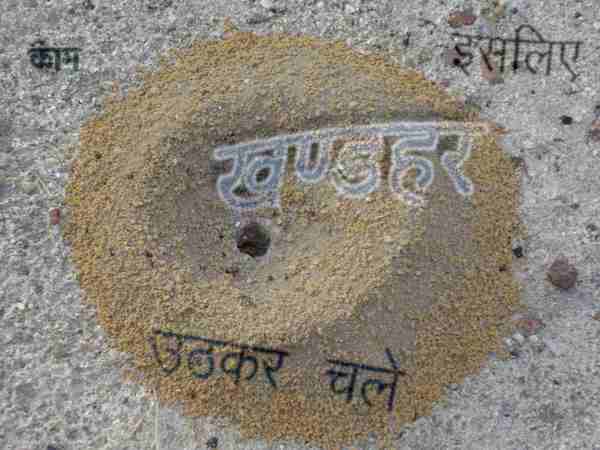 काम
इसलिए
खण्डहर
उठकर चले